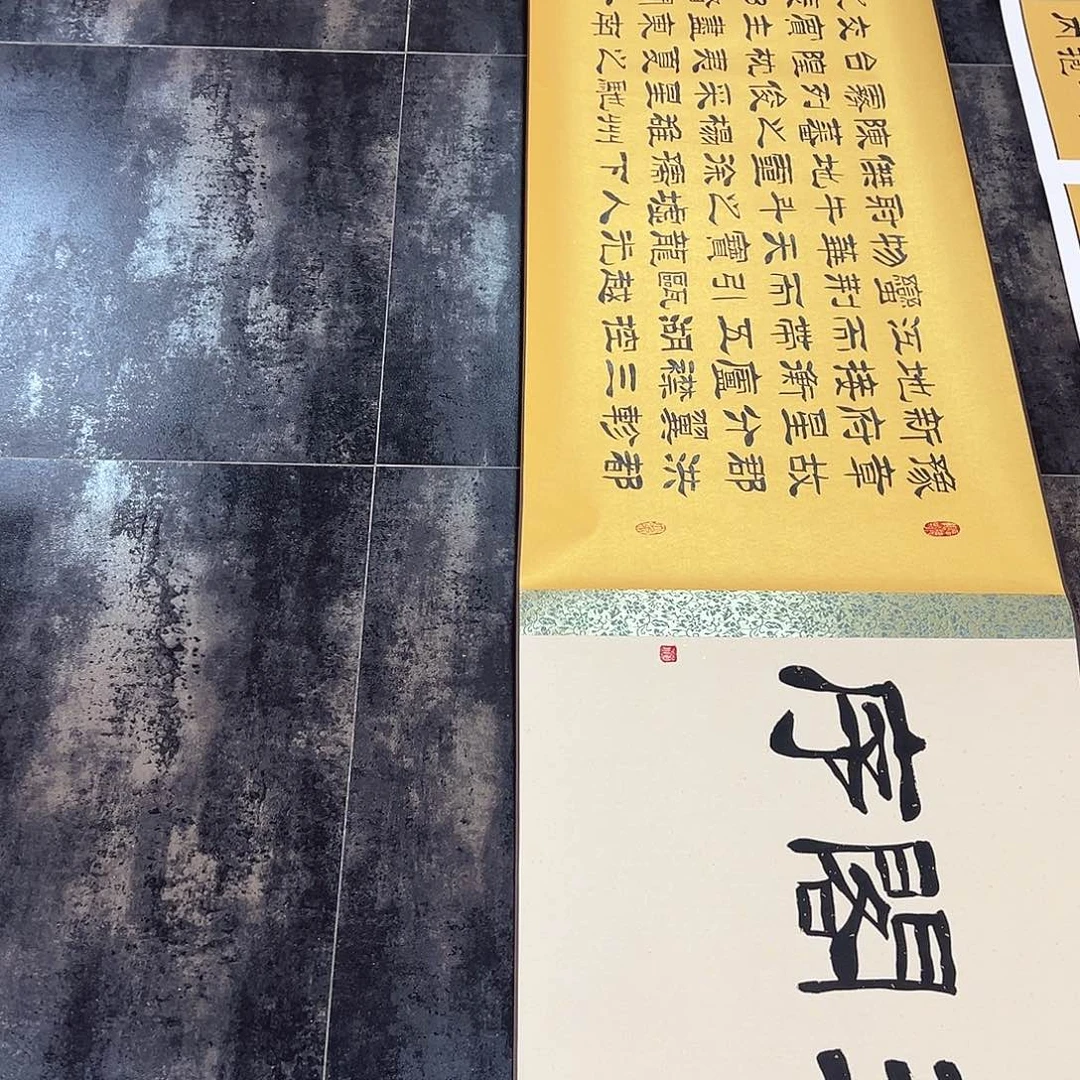 閣序
豫章故郡洪都
新府星分翼軫
地接衡廬襟三
江而帶五湖控
蠻荊而引甌越
物華天寶龍光
射牛斗之墟人
傑地靈徐孺下
陳蕃之榻雄州
霧列俊采星馳
台隍枕夷夏之
交賓主盡東南